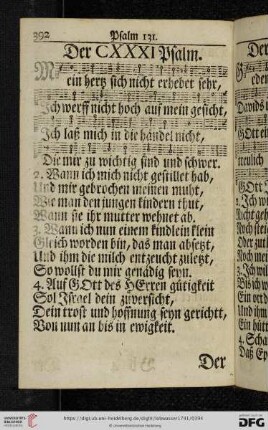 392 Psalm 131.
Der CXXXI Psalm.
Mein hertz sich nicht erhebet sehr,
Ich werff nicht hoch auf mein gesicht,
Ich laß mich in die händel nicht,
Die mir zu wichtig sind und schwer.
2. Wann ich mich nicht gestillet hab,
Und mir gebrochen meinen muht,
Wie man den jungen kindern thut,
Wann sie ihr mutter wehnet ab.
3. Wann ich nun einem kindlein klein
Gleich worden bin, das man absetzt,
Und ihm die milch entzeucht zuletzt,
So wollst du mir genädig seyn.
4. Auf GOtt des HErren gütigkeit
Sol Israel dein zuversicht,
Dein trost und hoffnung seyn gericht,
Von nun an bis in ewigkeit.
Der
https://digi.ub.uni-heidelberg.de/diglit/lobwasser1791/0394
© Universitätsbibliothek Heidelberg
DFG